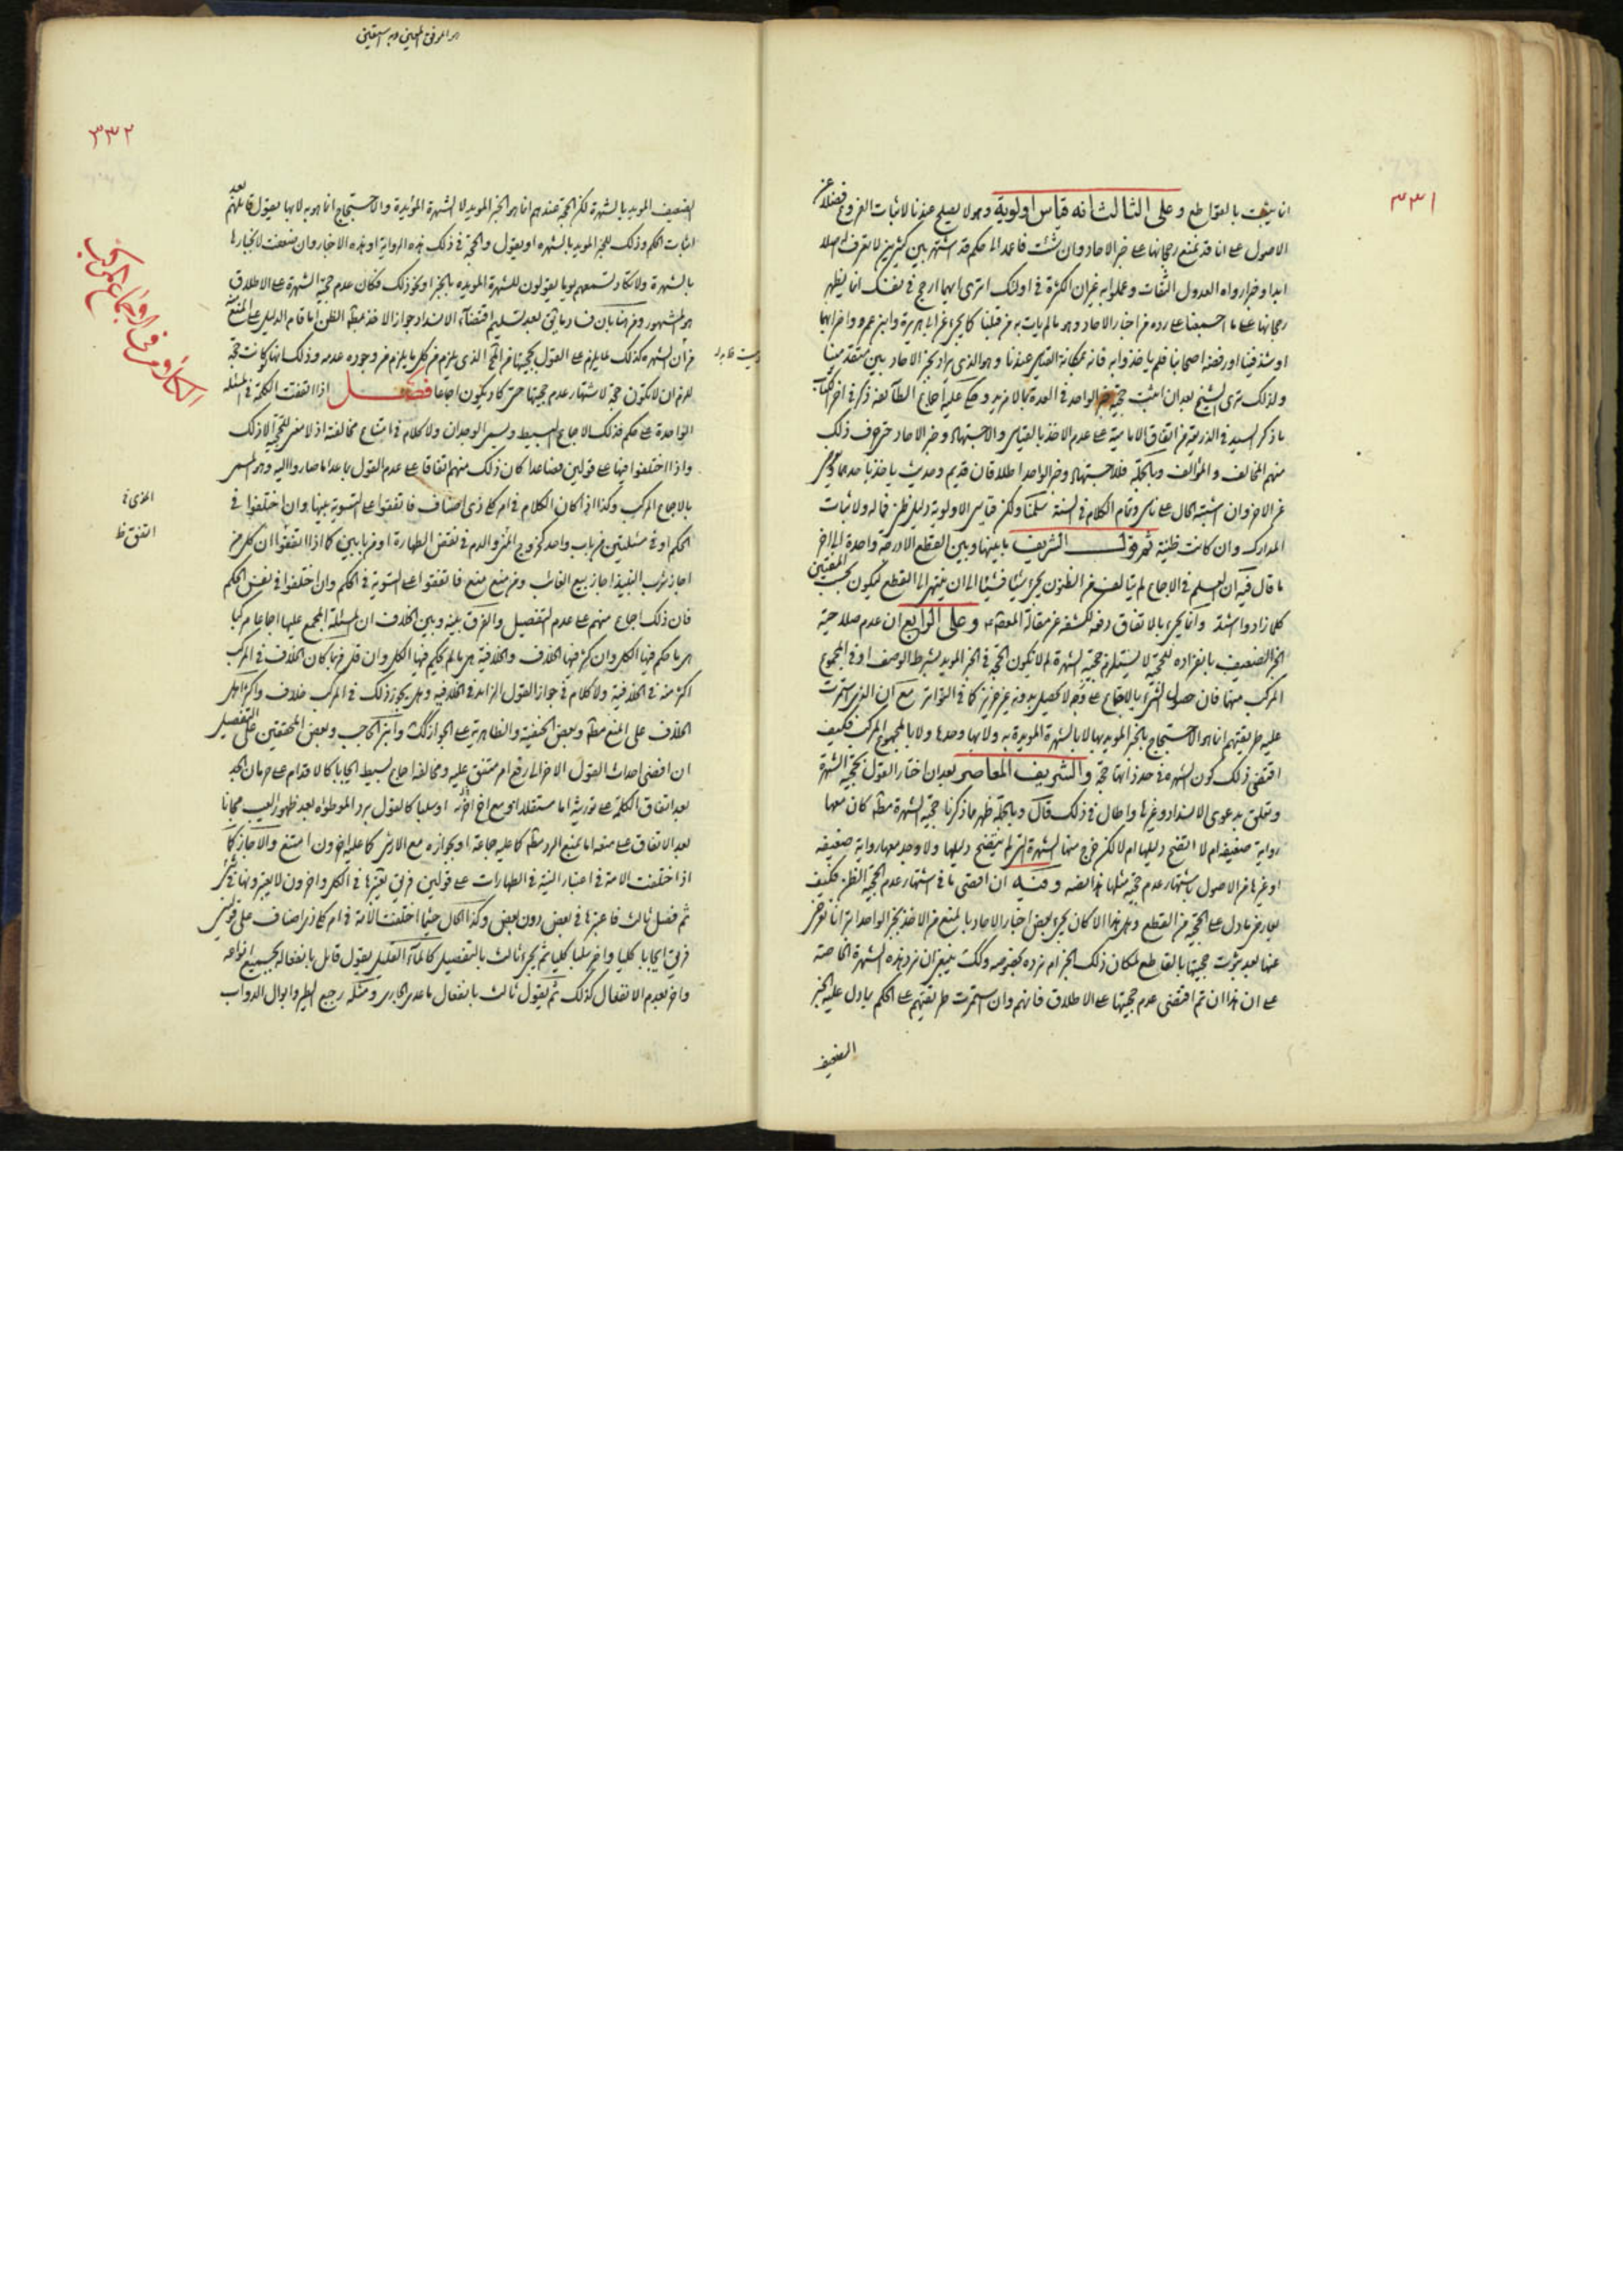 ٣٣١
انما يثبت بالقواطع وعلى الثالث انه قياس اولوية وهو لا يصلح عندنا لاثبات الفروع فضلا عن
الاصول على انا قد نمنع رجحانها على خبر الاحاد وان شئت فاعمد الى حكم قد اشتهر بين كثيرين لا تعرف له اصلا
ابدا وخبر رواه العدول الثقات وعملوا به غير ان الكثرة في اولئك اترى ايهما ارجح في نفسك انما يظهر
رجحانها على ما اجمعنا على رده من اخبار الاحاد وهو ما لم يات به من قبلنا كما يجيء عن ابي هريرة وابن عمر واضرابهما
او شذ فينا او رفضه اصحابنا فلم ياخذوا به فانه بمكانة القياس عندنا وهو الذي يراد بخبر الاحاد بين متقدمينا
ولذلك ترى الشيخ بعد ان اثبت حجية خبر الواحد في العدة بما لا مزيد وحكى عليه اجماع الطائفة ذكر في اخر الكتاب
ما ذكر السيد في الذريعة من اتفاق الامامية على عدم الاخذ بالقياس والاجتهاد وخبر الاحاد حتى عرف ذلك
منهم المخالف والمؤالف وبالجملة فللاجتهاد وخبر الواحد اطلاقان قديم وحديث ياخذ باحدهما
عن الاخر وان اشتبه الحال على ناس وتمام الكلام في السنة سلمنا ولكن قياس الاولوية دليل ظني فما له ولاثبات
المدارك وان كانت ظنية ثم قول الشريف ما بينها وبين القطع الا درجة واحدة الى اخر
ما قال فيه ان العلم في الاجماع لم يتالف من الظنون يجيء شيئا فشيئا الى ان ينتهي الى القطع ليكون بحسب المفتين
كلما زادوا اشتد وانما يجيء بالاتفاق دفعة لكشفه عن مقالة المعصوم وعلى الرابع ان عدم صلاحية
الخبر الضعيف بانفراده للحجية لا يستلزم حجية الشهرة لم لا تكون الحجة في الخبر المويد بشرط الوصف او في المجموع
المركب منهما فان حصول الشيء بالاجماع على وجه لا يحصل بدونه غير عزيز كما في التواتر مع ان الذي استمرت
عليه طريقتهم انما هو الاحتجاج بالخبر المويد بها لا بالشهرة المويدة به ولا بها وحدها ولا بالمجموع المركب فكيف
اقتضى ذلك كون الشهرة في حد ذاتها حجة والشريف المعاصر بعد ان اختار القول بحجية الشهرة
وتعلق بدعوى الانسداد وغيرها واطال في ذلك قال وبالجملة ظهر مما ذكرنا حجية الشهرة مطلقا كان معها
رواية ضعيفة ام لا اتضح دليلها ام لا لكن خرج منها الشهرة التي لم يتضح دليلها ولا وجد معها رواية ضعيفة
او غيرها من الاصول باشتهار عدم حجية مثلها هذا نصه وفيه ان اقصى ما في اشتهار عدم الحجية الظن فكيف
يعارض ما دل على الحجية من القطع وهل هذا الا كان يجيء بعض اخبار الاحاد بالمنع من الاخذ بخبر الواحد اترانا نعرض
عنها بعد ثبوت حجيتها بالقاطع لمكان ذلك الخبر ام نرده بخصوصه وكذلك ينبغي ان نرد هذه الشهرة الخاصة
على ان هذا ان تم اقتضى عدم حجيتها على الاطلاق فانهم وان استمرت طريقتهم على الحكم بما دل عليه الخبر
الضعيف
٣٣٢
الضعيف المويد بالشهرة لكن الحجة عندهم انما هو الخبر المويد لا الشهرة المؤيدة والاحتجاج انما هو به لا بها يقول قائلهم بعد
اثبات الحكم وذلك للخبر المويد بالشهرة او يقول والحجة في ذلك هذه الرواية او هذه الاخبار وان ضعفت لانجبارها
بالشهرة ولا تكاد تسمعهم يوما يقولون للشهرة المويدة بالخبر او نحو ذلك فكان عدم حجية الشهرة على الاطلاق
هو المشهور ومن هنا بان فساد ما يثق بعد تسليم اقتضاء الانسداد جواز الاخذ بمطلق الظن الا ما قام الدليل على المنع منه
من ان الشهرة كذلك لما يلزم على القول بحجيتها من المحال الذي يلزم من كل ما يلزم من وجوده عدمه وذلك انها لو كانت حجة
للزم ان لا تكون حجة لاشتهار عدم حجيتها حتى كاد يكون اجماعا فصل اذا اتفقت الكلمة في المسئلة
الواحدة على حكم فذلك الاجماع البسيط ويسمى الوحداني ولا كلام في امتناع مخالفته اذ لا معنى للحجية الا ذلك
واذا اختلفوا فيها على قولين فصاعدا كان ذلك منهم اتفاقا على عدم القول بما عدا ما صاروا اليه وهو المسمى
بالاجماع المركب وكذا اذا كان الكلام في امر كلي ذي اصناف فاتفقوا على التسوية بينها وان اختلفوا في
الحكم او في مسئلتين من باب واحد كخروج المني والدم في نقض الطهارة او من بابين كما اذا اتفقوا ان كل من
اجاز شرب النبيذ اجاز بيع الغائب ومن منع منع فاتفقوا على التسوية في الحكم وان اختلفوا في نفس الحكم
فان ذلك اجماع منهم على عدم التفصيل والفرق بينه وبين الخلاف ان المسئلة المجمع عليها اجماعا مركبا
هي ما حكم فيها الكل وان كثر فيها الخلاف والخلافية هي ما لم يحكم فيها الكل وان قل فربما كان الخلاف في المركب
اكثر منه في الخلافية ولا كلام في جواز القول الزايد في الخلافية وهل يجوز ذلك في المركب خلاف واكثر اهل
الخلاف على المنع مطلقا وبعض الحنفية والظاهرية على الجواز كذلك وابن الحاجب وبعض المحققين على التفصيل
ان افضى احداث القول الاخر الى رفع امر متفق عليه ومخالفة اجماع بسيط ايجابا كالاقدام على حرمان الجد
بعد اتفاق الكلمة على توريثه اما مستقلا او مع اخ او سلبا كالقول برد الموطوءة بعد ظهور العيب مجانا
بعد الاتفاق على منعه اما بمنع الرد مطلقا كما عليه جماعة او بجوازه مع الارش كما عليه اخرون امتنع والا جاز كما
اذا اختلفت الامة في اعتبار النية في الطهارات على قولين فريق يعتبرها في الكل واخرون لا يعتبرونها في شيء
ثم فصل ثالث فاعتبرها في بعض دون بعض وكذا الحال حيثما اختلفت الامة في امر كلي ذي اصناف على قولين
فريق ايجابا كليا واخر سلبا كليا ثم يجيء ثالث بالتفصيل كالماء القليل يقول قائل بانفعاله بجميع انواعه
واخر بعدم الانفعال كذلك ثم يقول ثالث بانفعال ما عدى الجاري ومثله رجيع الطير وابوال الدواب
الكلام في الاجماع المركب
اتفق ظ